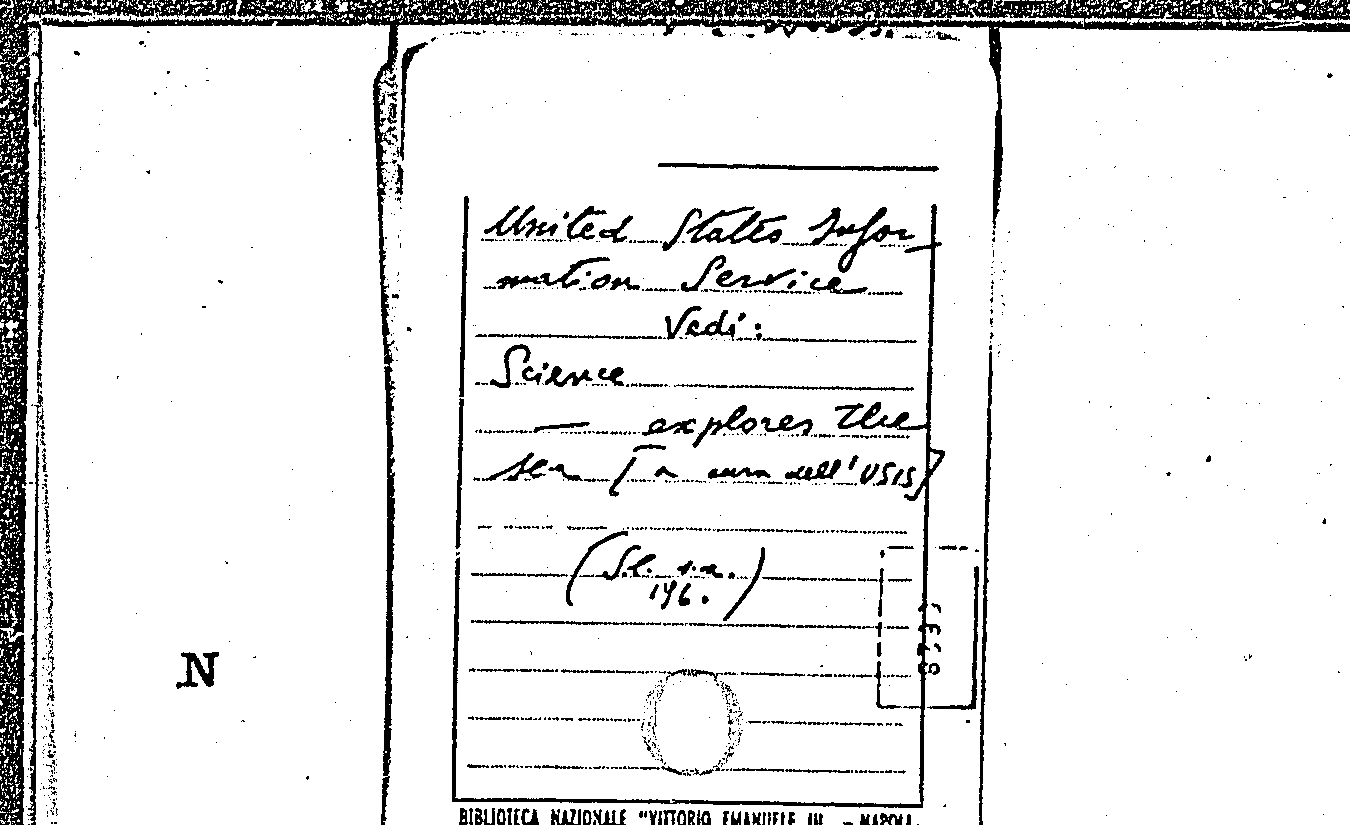 United States Infor-
mation Service
Vedi:
Science
— explores the
sea [a cura dell'USIS]
(S.l. s.a.
196.)
N
BIBLIOTECA NAZIONALE "VITTORIO EMANUELE III - NAPOLI